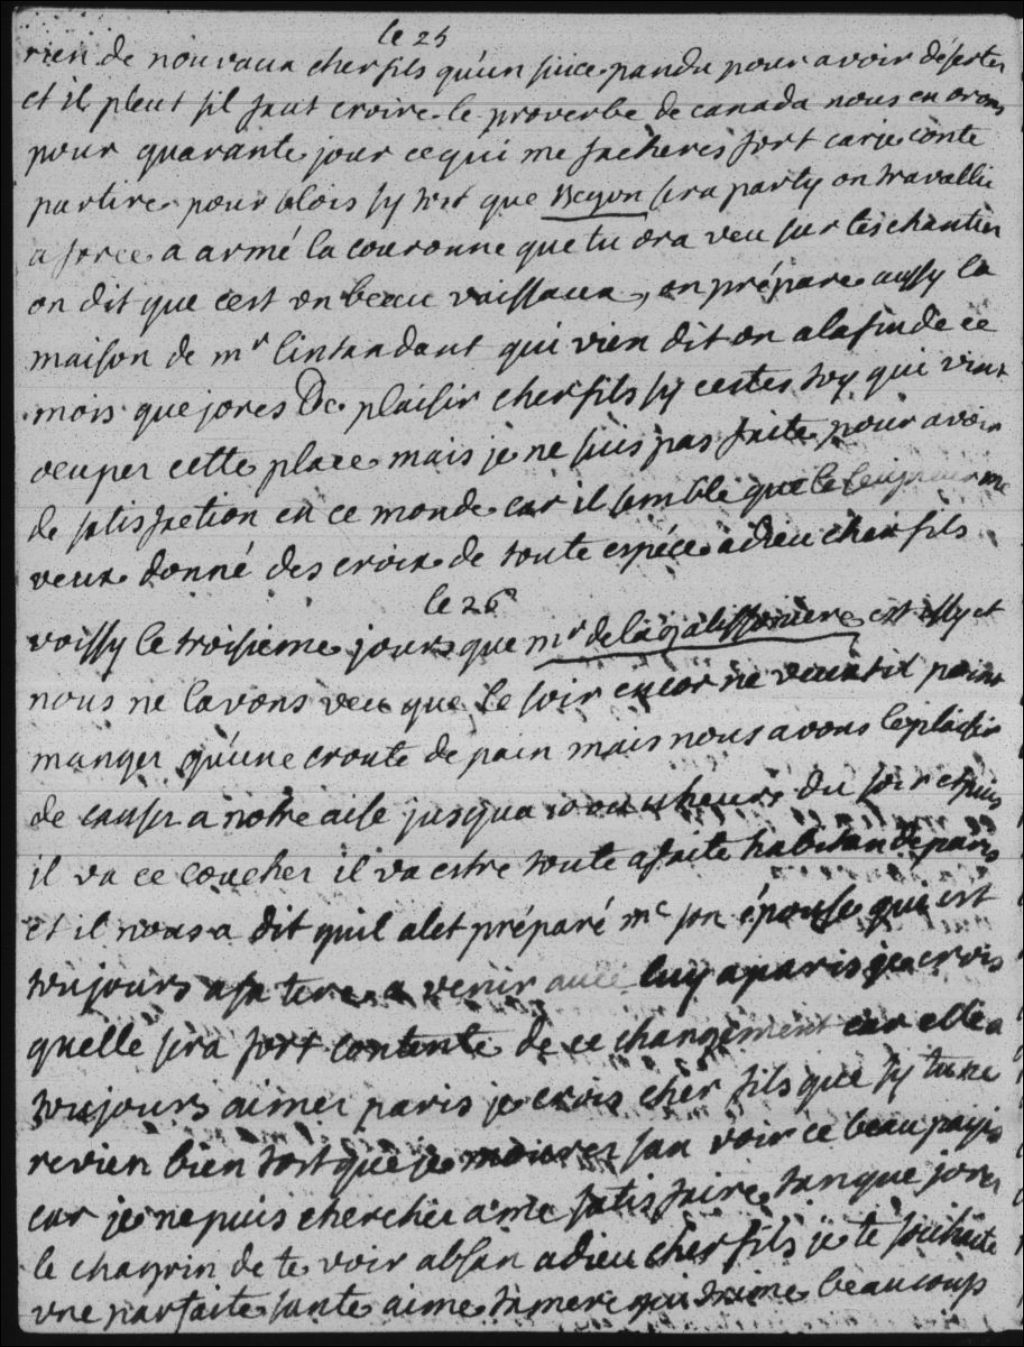 le 25
rien de nouvaux cher fils qu'un suice pandu pour avoir déserter
et il pleut sil faut croire le proverbe de canada nous en orons
pour quarante jour ce qui me facheres fort car je conte
partire pour blois sy tost que Begon sera party on travallie
a force a armé la couronne que tu ora veu sur les chantier
on dit que cest on beau vaissaux, on prépare aussy la
maison de mr lintandant qui vien dit on a la fin de ce
mois que jores de plaisir cher fils sy cestes toy qui vint
ocuper cette place mais je ne suis pas faite pour avoir
de satisfaction en ce monde car il semble que le seigneur me
veux donné des croix de toute espéce adieu cher fils
le 26
voissy le troisieme jours que mr de la galissonniere est issy et
nous ne lavons veu que le soir encor ne veux til point
manger qu'une croute de pain mais nous avons le plaisir
de causer a notre aise jusqua 10 ou 11 heures du soir et puis
il va ce coucher il va estre toute afaite habitan de paris
et il nous a dit quil alet préparé me son épouse qui est
toujours a sa tere a venir avec luy a paris je crois
quelle sera fort contente de ce changement car elle a
toujours aimer paris je crois cher fils que sy tu ne
revien bien tost que je moures san voir ce beau payis
car je ne puis chercher a me satisfaire tan que jores
le chagrin de te voir absan adieu cher fils je te souhaite
une parfaite sante aime ta mere qui taime beaucoup